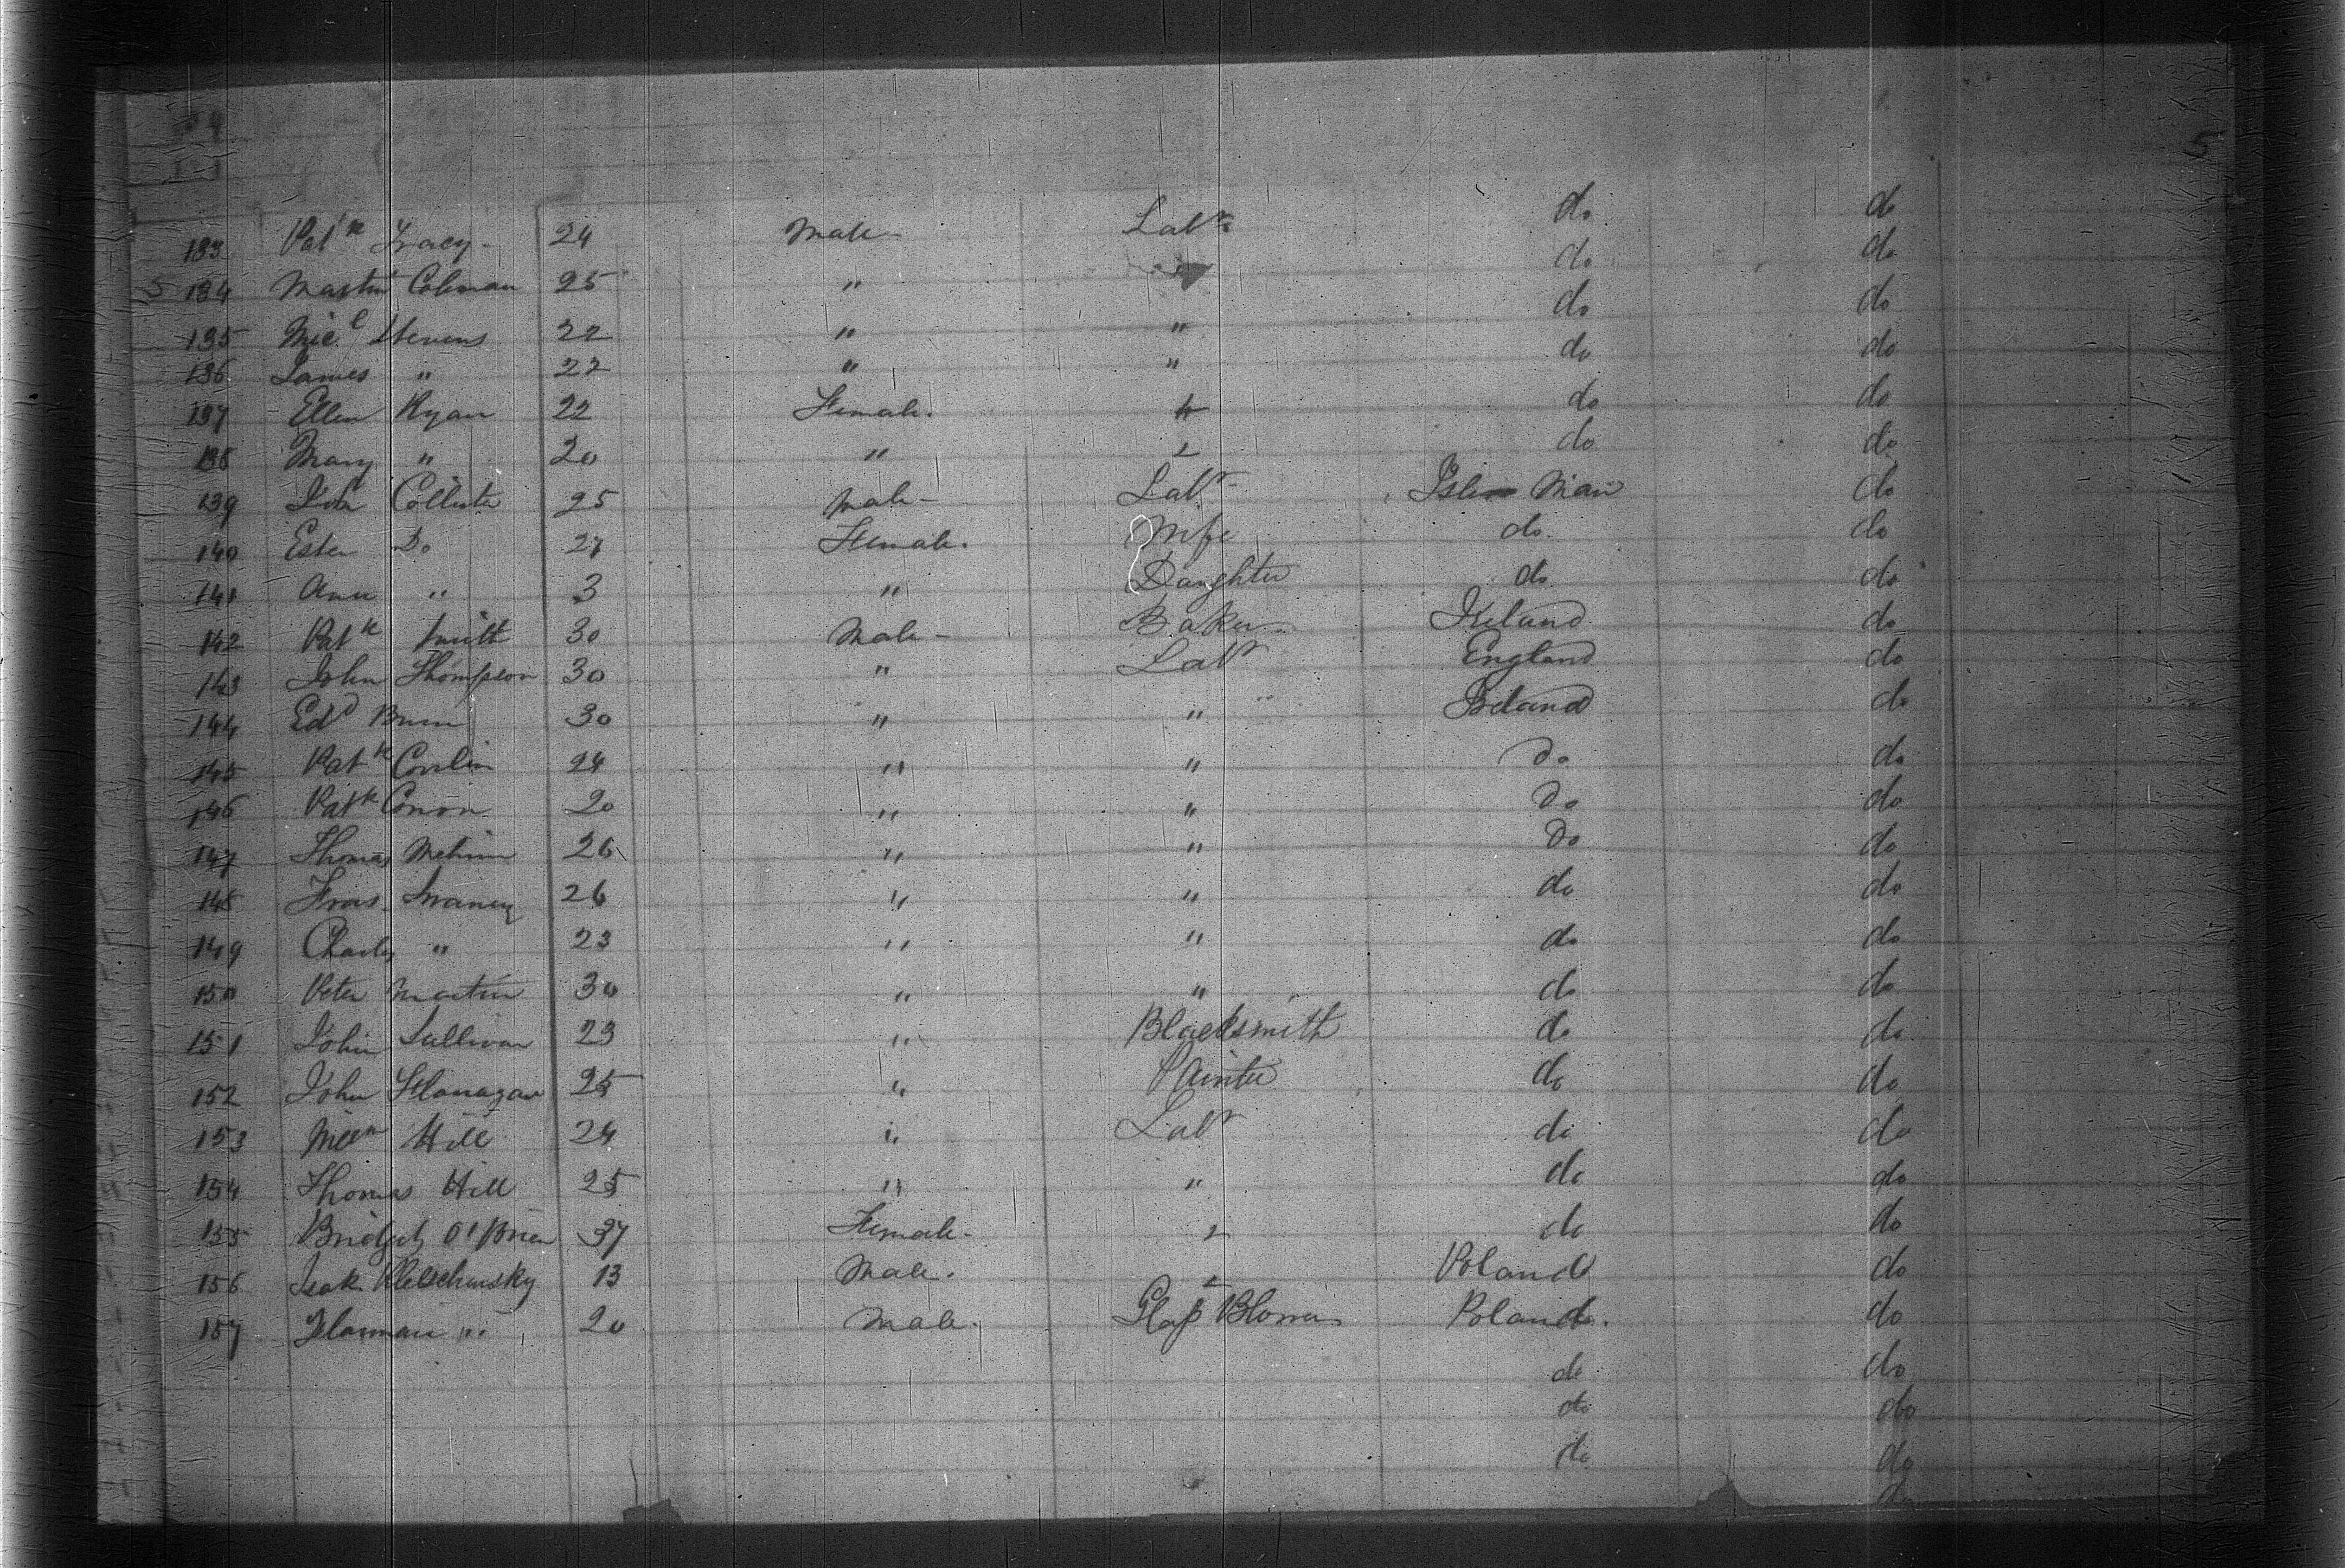 5
133 Patk Tracy - 24 Male - Labr do do
134 Martin Coleman 25 " do do
135 Micl Stevens 22 " " do do
136 James " 22 " " do do
137 Ellen Ryan 22 Female. do do
138 Mary " 20 " do do
139 John Collister 25 Male - Labr - Isle Man do
140 Ester Do 27 Female. Wife do. do
141 Ann " 3 " Daughter do. do
142 Patk Smith 30 Male - Baker Ireland do
143 John Thompson 30 " Labr England do
144 Edd 30 " " Ireland do
145 Patk Conlin 24 " " Do do
146 Patk Conon 20 " " Do do
147 Thomas 26 " " Do do
148 Fras. 26 " " do do
149 Charles " 23 " " do do
150 Peter Martin 30 " " do do
151 John Sullivan 23 " Blacksmith do do
152 John Flanagan 25 " Painter do do
153 Hill 24 " Labr do do
154 Thomas Hill 25 " " do do
155 Bridget O'Brien 37 Female - do do
156 Isak 13 Male. Poland do
157 " 20 Male. Glass Blower Poland. do
do do
do do
do do